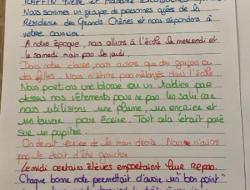 Nous sommes un groupe de personnes âgées de la
Résidence des Grands Chênes et nous répondons à
votre courrier.
A notre époque, nous allions à l'école le mercredi et
le samedi mais pas le jeudi.
Dans notre classe nous avions que des garçons ou
des filles. Nous n'étions pas mélangés dans l'école.
Nous portions une blouse ou un tablier par
dessus nos vêtements pour ne pas les salir
nous utilisions une plume, un encrier et
un buvard pour écrire. Tout cela était posé
sur un pupitre.
On devait écrire de la main droite. Nous n'avions
pas le droit d'être gauchers.
Le midi certains élèves emportaient leur repas.
Chaque bonne note permettait d'avoir un "bon point"